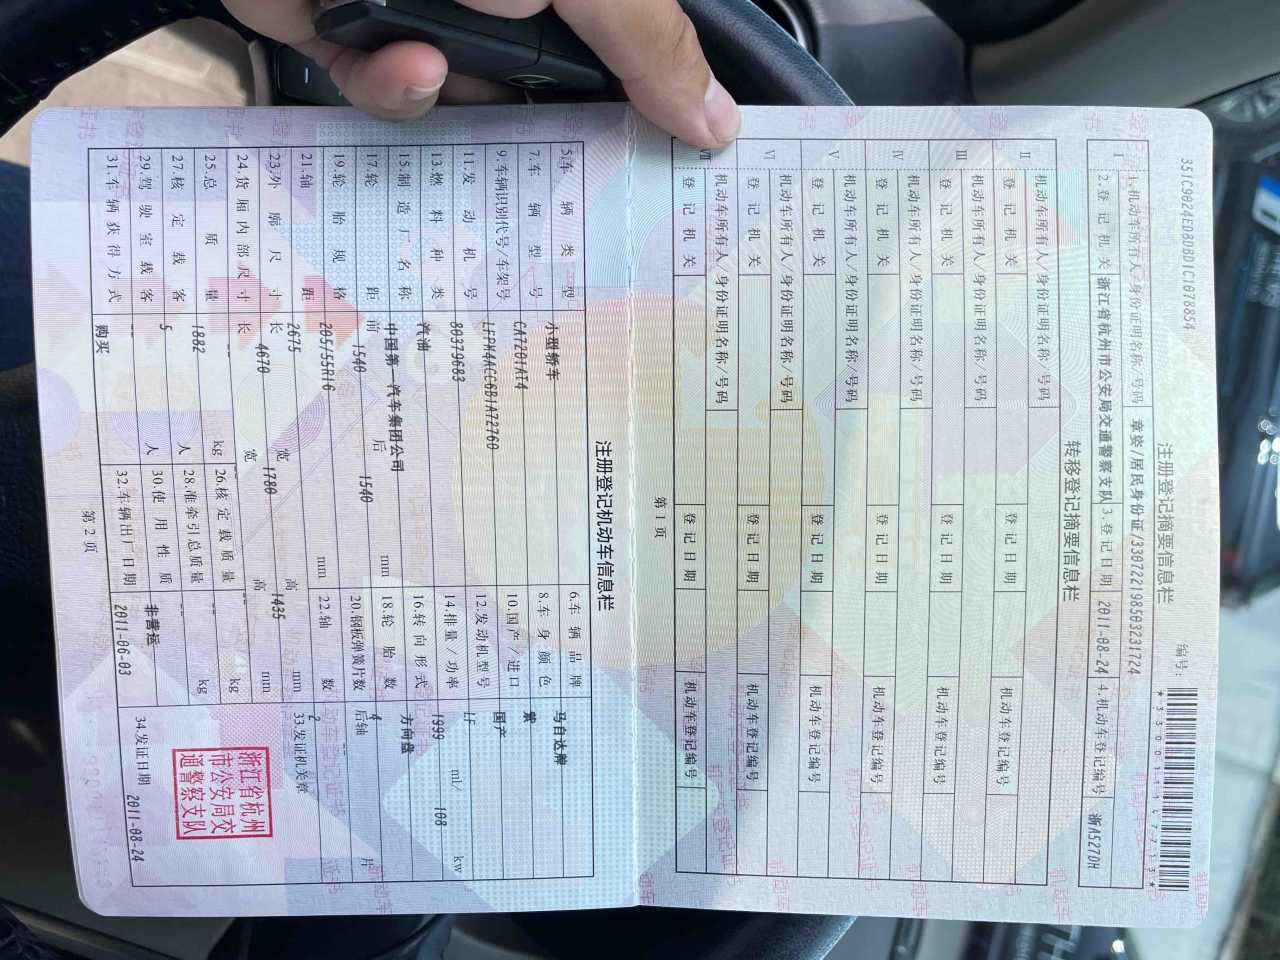 351C9024ED8D8D1C1078854
注册登记摘要信息栏
编号:
*330011447733*
I 1.机动车所有人/身份证明名称/号码 章姿/居民身份证/330722198503231724
2.登记机关 浙江省杭州市公安局交通警察支队 3.登记日期 2011-08-24 4.机动车登记编号 浙A527DH
转移登记摘要信息栏
II 机动车所有人/身份证明名称/号码
登记机关 登记日期 机动车登记编号
III 机动车所有人/身份证明名称/号码
登记机关 登记日期 机动车登记编号
IV 机动车所有人/身份证明名称/号码
登记机关 登记日期 机动车登记编号
V 机动车所有人/身份证明名称/号码
登记机关 登记日期 机动车登记编号
VI 机动车所有人/身份证明名称/号码
登记机关 登记日期 机动车登记编号
VII 机动车所有人/身份证明名称/号码
登记机关 登记日期 机动车登记编号
第1页
注册登记机动车信息栏
5.车辆类型 小型轿车 6.车辆品牌 马自达牌
7.车辆型号 CA7201AT4 8.车身颜色 紫
9.车辆识别代号/车架号 LFPM4ACC6B1A72760 10.国产/进口 国产
11.发动机号 80379683 12.发动机型号 LF
13.燃料种类 汽油 14.排量/功率 1999 ml/ 108 kw
15.制造厂名称 中国第一汽车集团公司 16.转向形式 方向盘
17.轮距 前 1540 后 1540 mm 18.轮胎数 4
19.轮胎规格 205/55R16 20.钢板弹簧片数 后轴 -- 片
21.轴距 2675 mm 22.轴数 2
23.外廓尺寸 长 4670 宽 1780 高 1435 mm
33.发证机关章
24.货厢内部尺寸 长 -- 宽 -- 高 -- mm
25.总质量 1882 kg 26.核定载质量 -- kg
27.核定载客 5 人 28.准牵引总质量 -- kg
29.驾驶室载客 -- 人 30.使用性质 非营运
31.车辆获得方式 购买 32.车辆出厂日期 2011-06-03 34.发证日期 2011-08-24
浙江省杭州
市公安局交
通警察支队
第2页